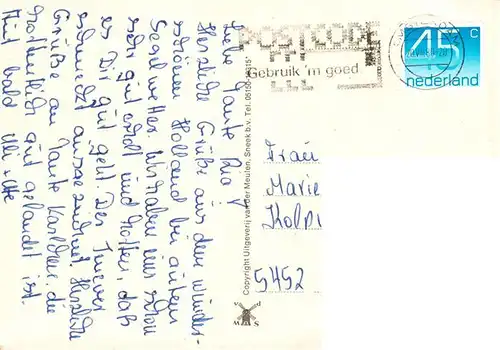 Liebe Tante Ria!
Herzliche Grüße aus dem wunder-
schönen Holland bei gutem
Segelwetter. Wir haben uns schon
sehr gut erholt und hoffen, daß
es dir gut geht. Der
schmeckt ausgezeichnet. Herzliche
Grüße an Tante Käthchen, die
hoffentlich gut gelandet ist.
Auf bald
Uli + Ute
Copyright Uitgeverij van der Meulen, Sneek b.v. Tel. 05150-
POSTCODE
Gebruik 'm goed
45 C
nederland
Frau
Marie
Kolpi
5452